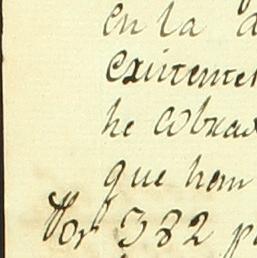 en la
existente
he cobra
que hem
Por 382 p